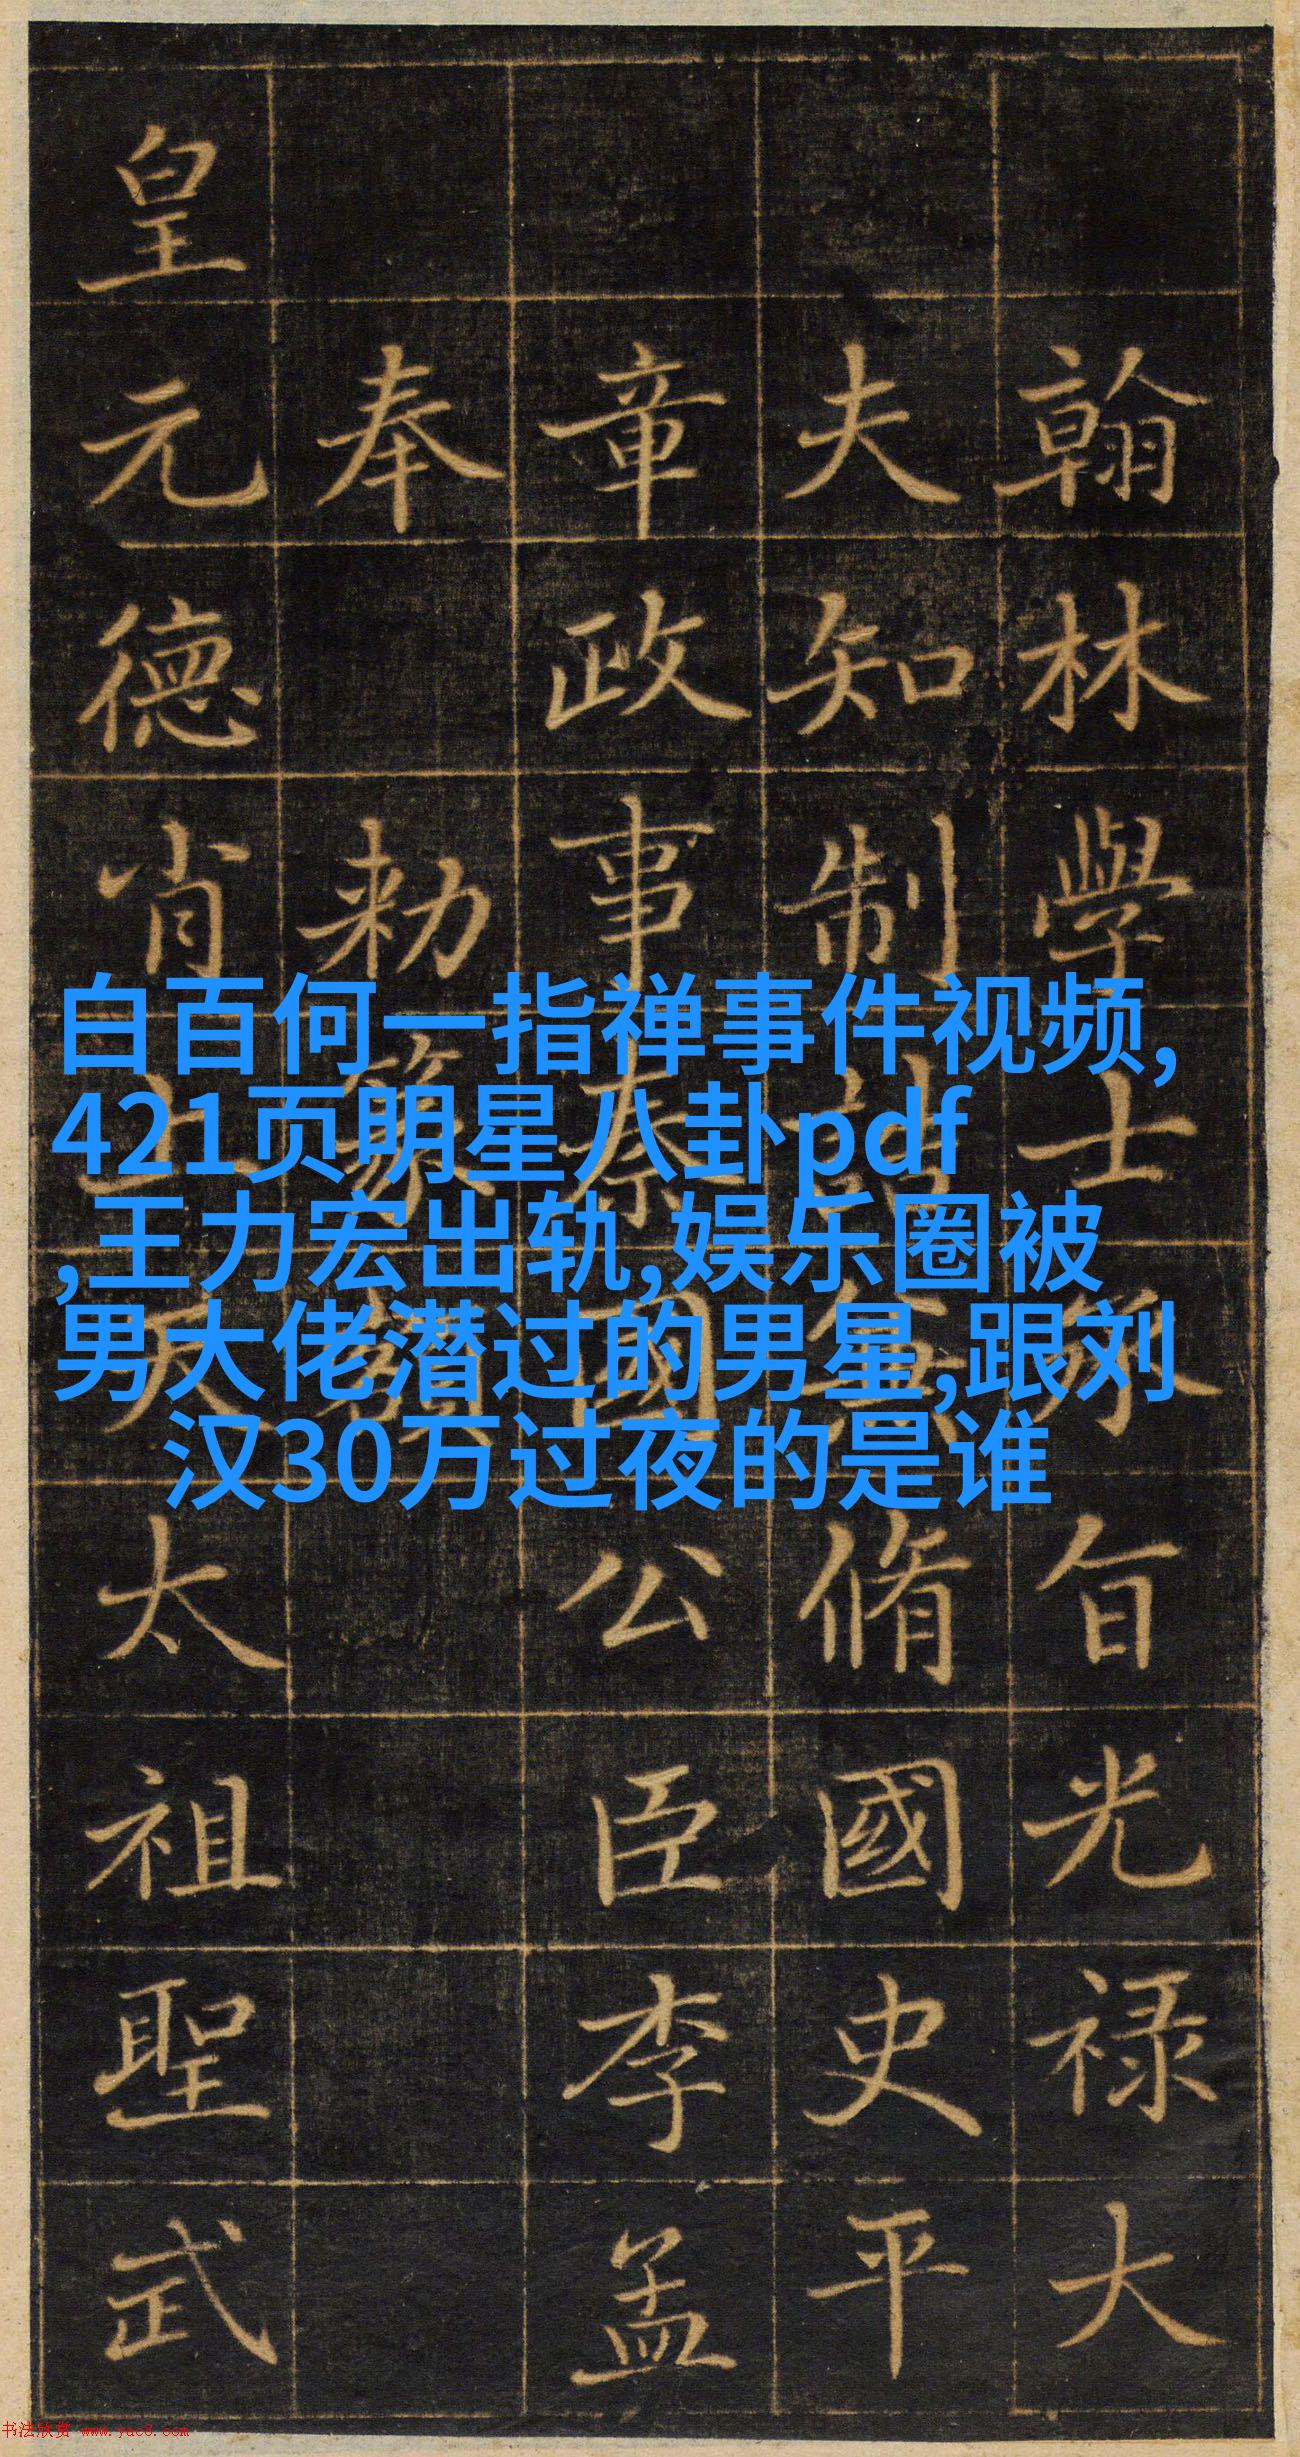 翰林學士承旨光禄大
夫知制誥兼脩國史平
章政事秦國公臣李孟
奉 勑篆額
皇元德肖上天太祖聖武
白百何一指禅事件视频,
421页明星八卦pdf
,王力宏出轨,娱乐圈被
男大佬潜过的男星,跟刘
汉30万过夜的是谁
书法欣赏 www.yac8.com